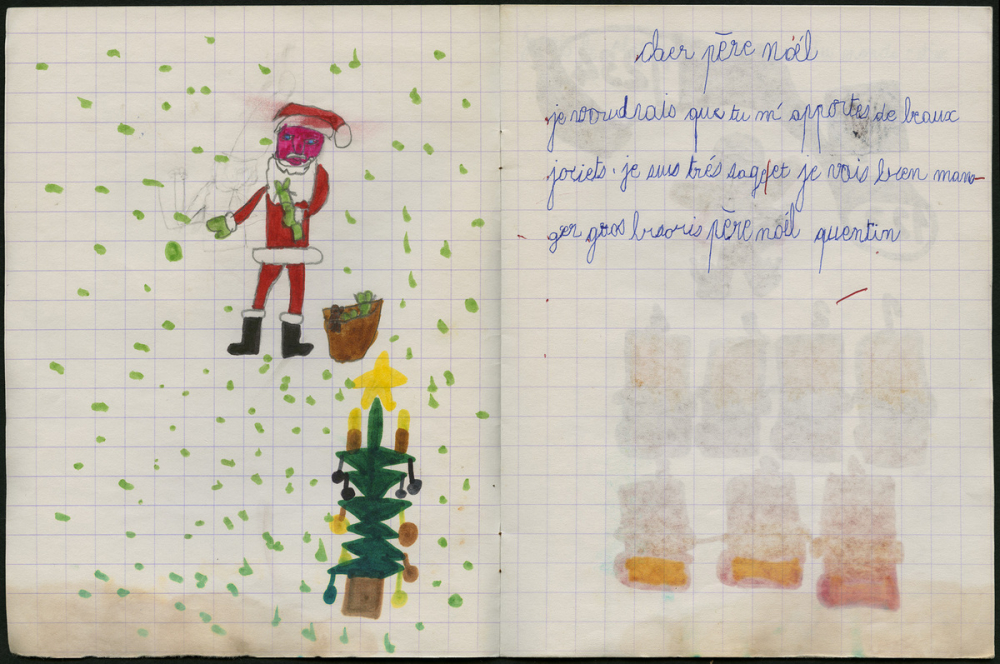 cher père nöél
je voudrais que tu m'apportes de beaux
joriets. je suis trés sage et je vais bien man-
ger gros bisoris père nöél quentin